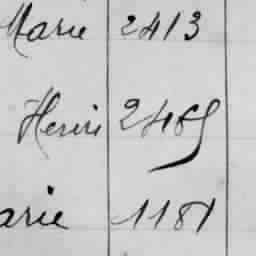 Marie 2413
Henri 2485
arie 1181